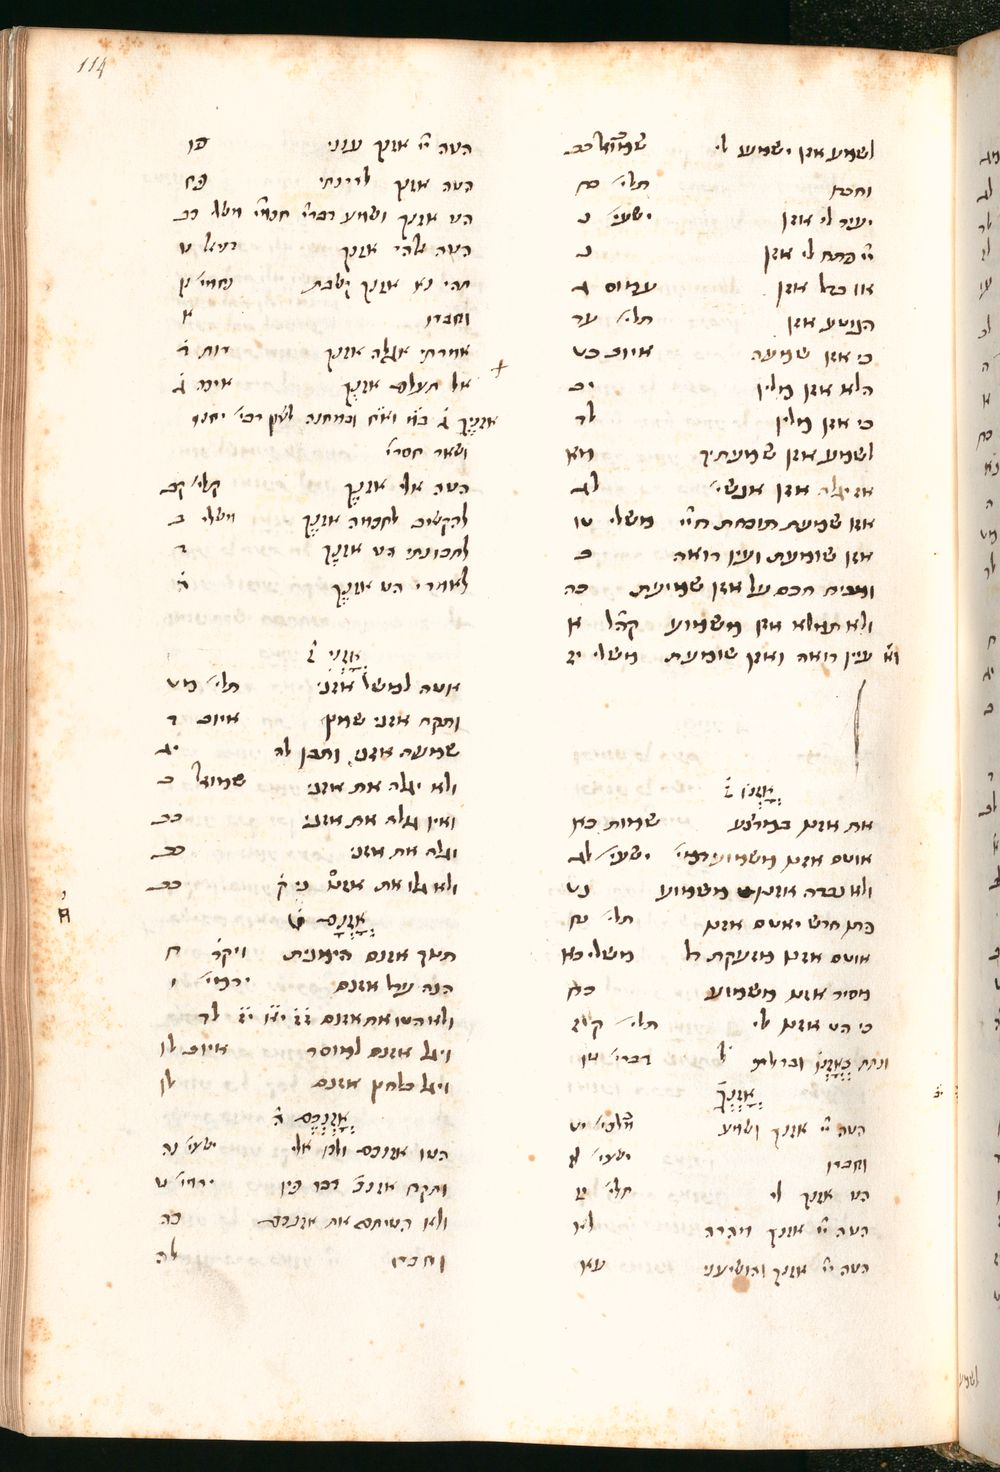 114
לשמע אזן ישמעו לי שמואל כב
וחברו תלי׳ יח
יעיר לי אזן ישעי׳ נ
יי פתח לי אזן נ
או בדל אזן עמוס ג
הנוטע אזן תלי׳ צד
כי אזן שמעה איוב כט
הלא אזן מלין יב
כי אזן מלין לד
לשמע אזן שמעתיך מב
אז יגלה אזן אנשי׳ לג
אזן שמעת תוכחת חיי׳ משלי טו
אזן שומעת ועין רואה כ
ומוכיח חכם על אזן שמיעת כה
ולא תמלא אזן משמוע קהל א
עין רואה ואזן שומעת משלי
אזנו
את אזנו במרצע שמות כא
אוטם אזנו משמוע דמי׳ ישעי׳ לג
ולא כבדה אזנו משמוע נט
כמו חרש יאטם אזנו תלי׳ נח
אוטם אזנו מזעקת דל משלי כא
מסיר אזנו משמוע כח
כי הטה אזנו לי תלי׳ קיו
ונתת באזנו ובדלת דברי׳ טו
אזנך
הטה יי אזנך ושמע מלכי׳ יט
וחברו ישעי׳ לז
הט אזנך לי תלי׳ יז
הטה יי אזנך מהרה לא
הטה יי אזנך והושיעני עא
הטה יי אזנך ענני פו
הטה אזנך לרינתי פח
הט אזנך ושמע דברי חכמי׳ משלי כב
הטה אלהי אזנך דניאל ט
תהי נא אזנך קשבת נחמי׳
וחברו א
אמרתי אגלה אזנך רות ד
אל תעלם אזנך איכה ג
ושאר חסר׳
הטה אלי אזנך תלי׳ קב
להקשיב לחכמה אזנך משלי ב
לתבונתי הט אזנך ה
לאמרי הט אזנך ד
אזני
אטה למשל אזני תלי׳ מט
ותקח אזני שמץ איוב ד
שמעה אזני ותבן לה יג
ולא יגלה את אזני שמואל כ
ואין גלה את אזני כב
וגלה את אזני כב
ולא גלו את אזני כי ק׳ כב
אזנם
תנוך אזנם הימנית ויקר׳ ח
הנה ערלה אזנם ירמי׳ ו
ולא הטו את אזנם
ויגל אזנם למוסר איוב לו
ויגל בלחץ אזנם לו
אזנכם
הטו אזנכם ולכו אלי ישעי׳ נה
ותקח אזנכם דבר פיו ירמי׳ ט
ולא הטיתם את אזנכם כה
וחברו לה